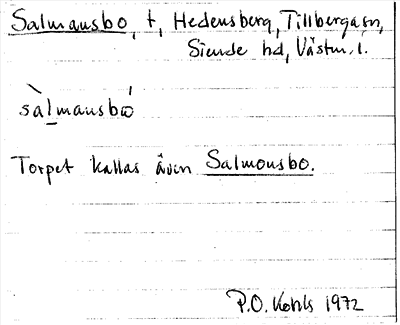 Salmansbo, t, Hedensberg, Tillberga sn,
Siende hd, Västm. l.
sàlmansbω´
Torpet kallas även Salmonsbo.
P.O. Kohls 1972